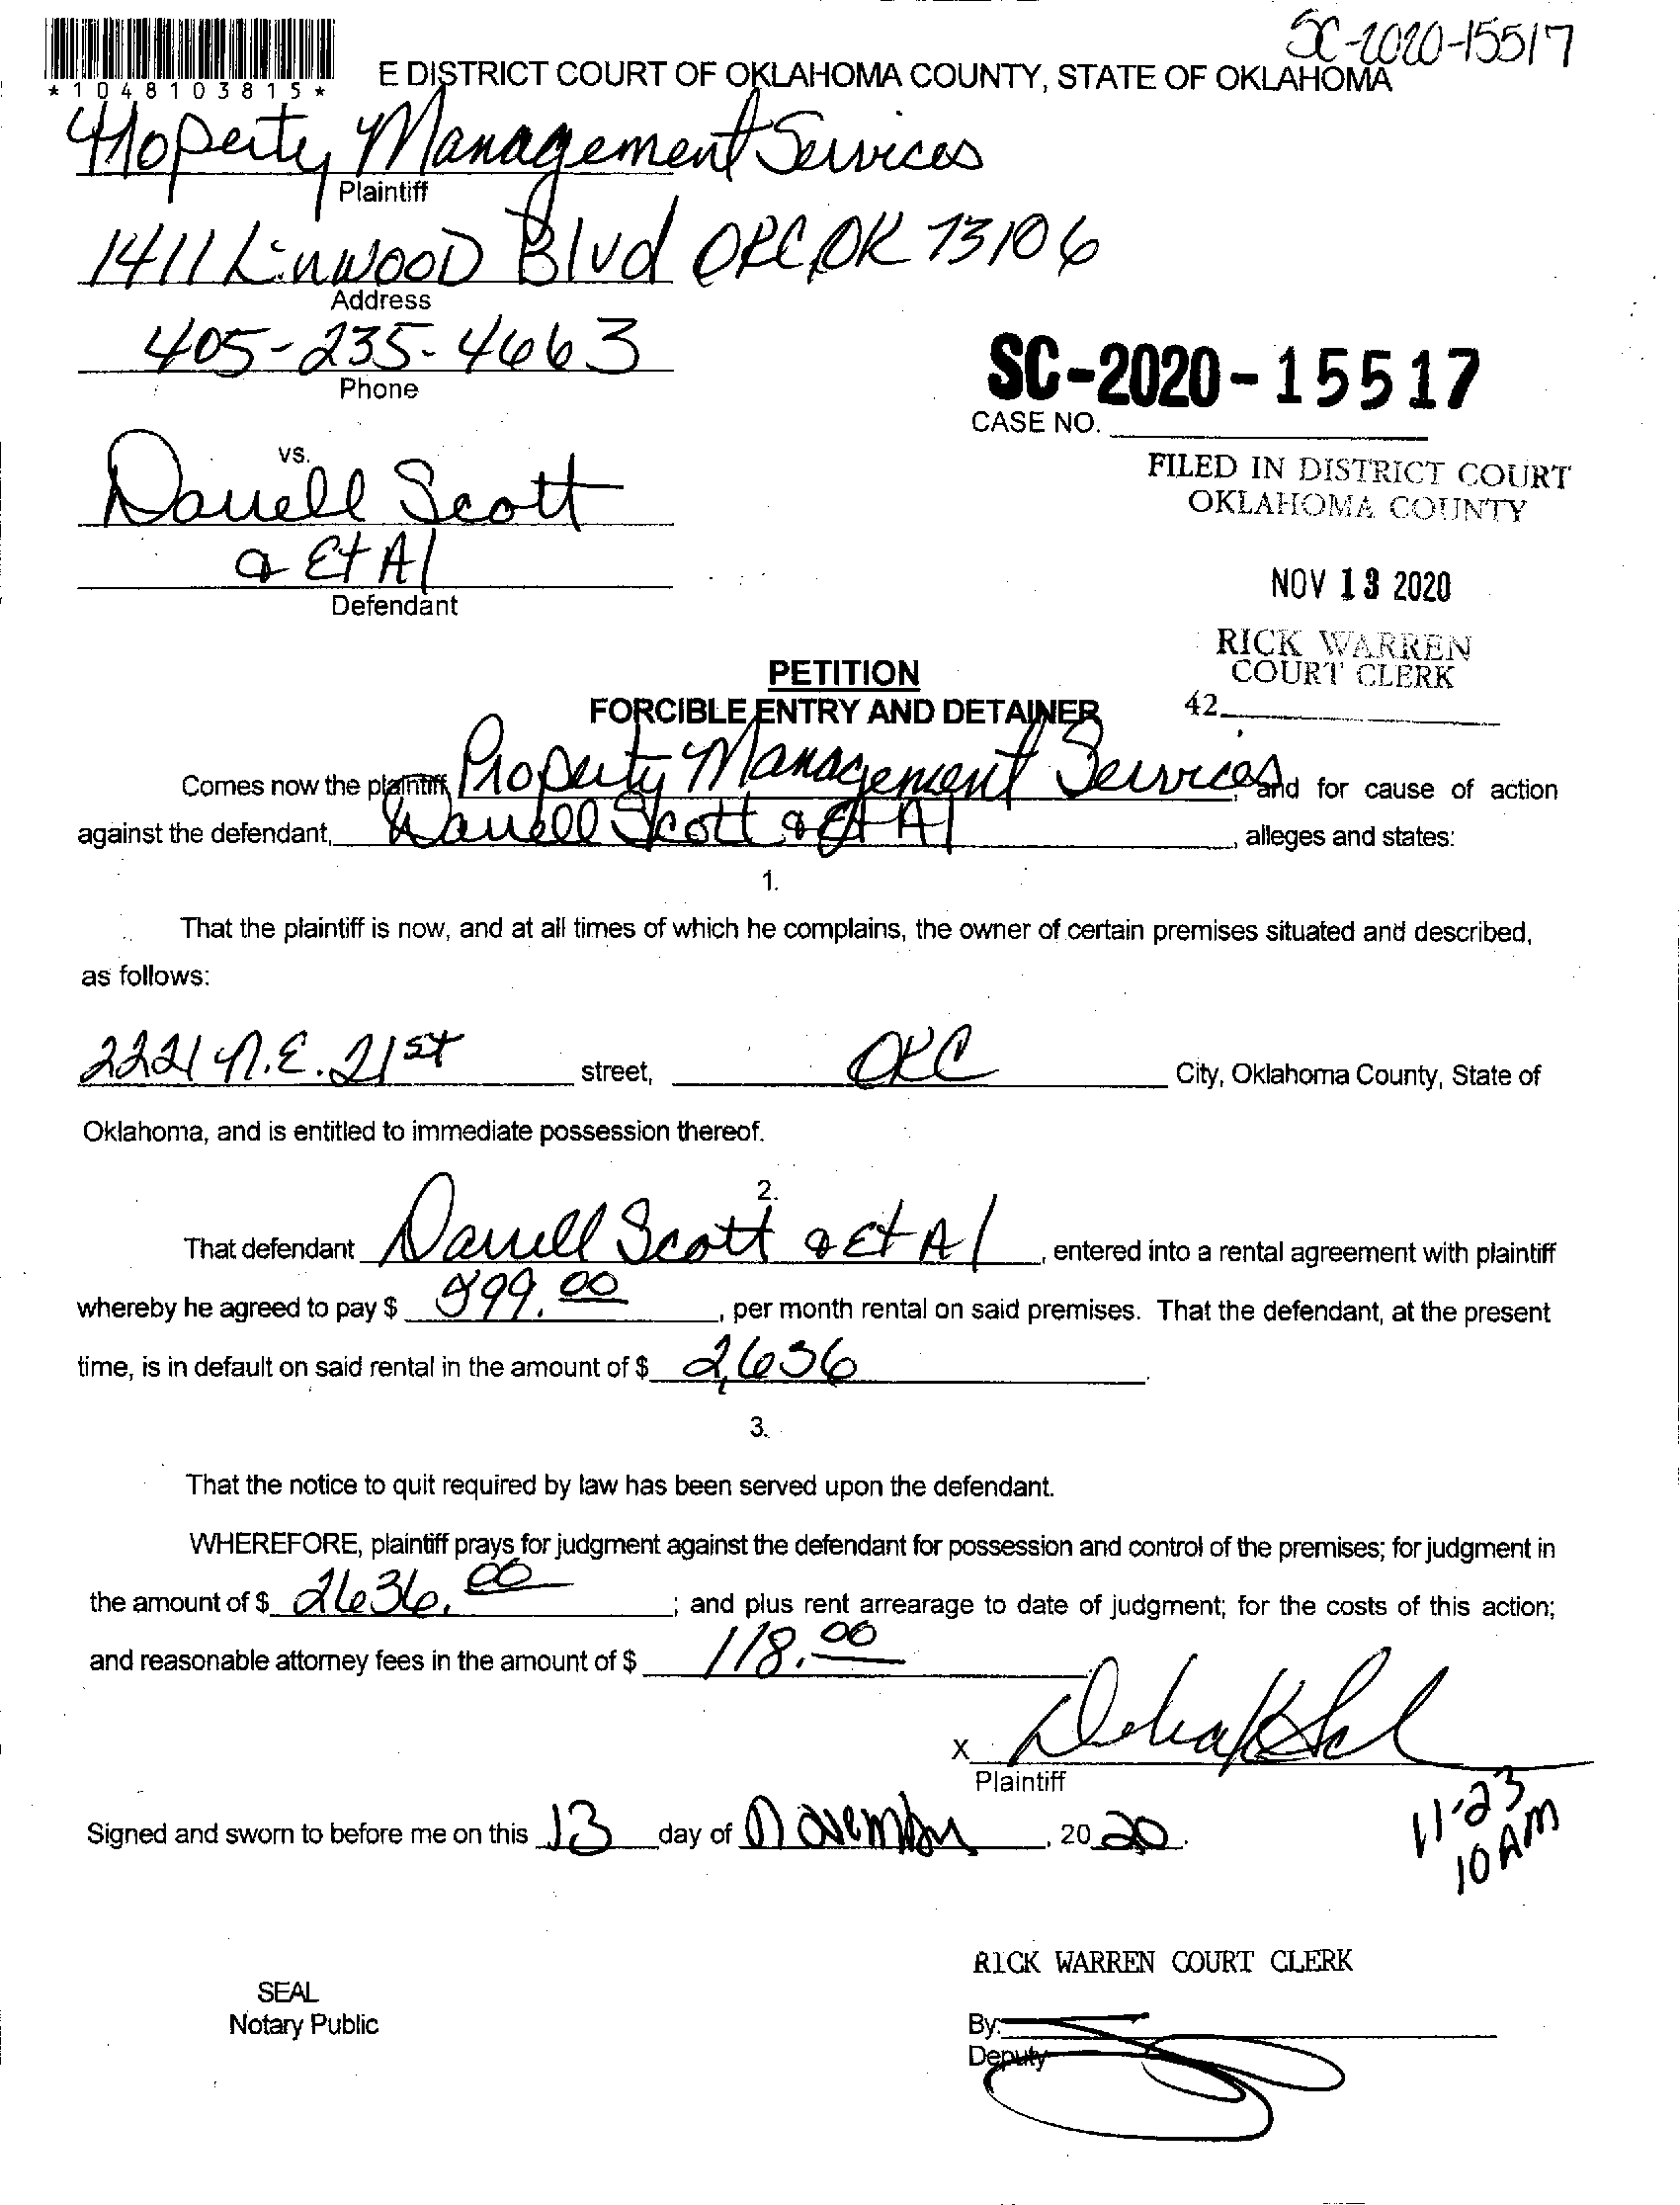 SC-2020-15517
*1048103815*
E DISTRICT COURT OF OKLAHOMA COUNTY, STATE OF OKLAHOMA
Property Management Services
Plaintiff
1411 Linwood Blvd OKC OK 73106
Address
405-235-4663
Phone
SC-2020-15517
CASE NO.
vs.
Darrell Scott
& Et Al
Defendant
FILED IN DISTRICT COURT
OKLAHOMA COUNTY
NOV 13 2020
RICK WARREN
COURT CLERK
42
PETITION
FORCIBLE ENTRY AND DETAINER
Comes now the plaintiff, Property Management Services, and for cause of action
against the defendant, Darrell Scott & Et Al, alleges and states:
1.
That the plaintiff is now, and at all times of which he complains, the owner of certain premises situated and described,
as follows:
2221 N.E. 21st street, OKC City, Oklahoma County, State of
Oklahoma, and is entitled to immediate possession thereof.
2.
That defendant Darrell Scott & Et Al, entered into a rental agreement with plaintiff
whereby he agreed to pay $ 899.00, per month rental on said premises. That the defendant, at the present
time, is in default on said rental in the amount of $ 2,636.
3.
That the notice to quit required by law has been served upon the defendant.
WHEREFORE, plaintiff prays for judgment against the defendant for possession and control of the premises; for judgment in
the amount of $ 2636.00; and plus rent arrearage to date of judgment; for the costs of this action;
and reasonable attorney fees in the amount of $ 118.00
X
Plaintiff
Signed and sworn to before me on this 13 day of November, 2020.
11-23
10 AM
RICK WARREN COURT CLERK
SEAL
Notary Public
By:
Deputy